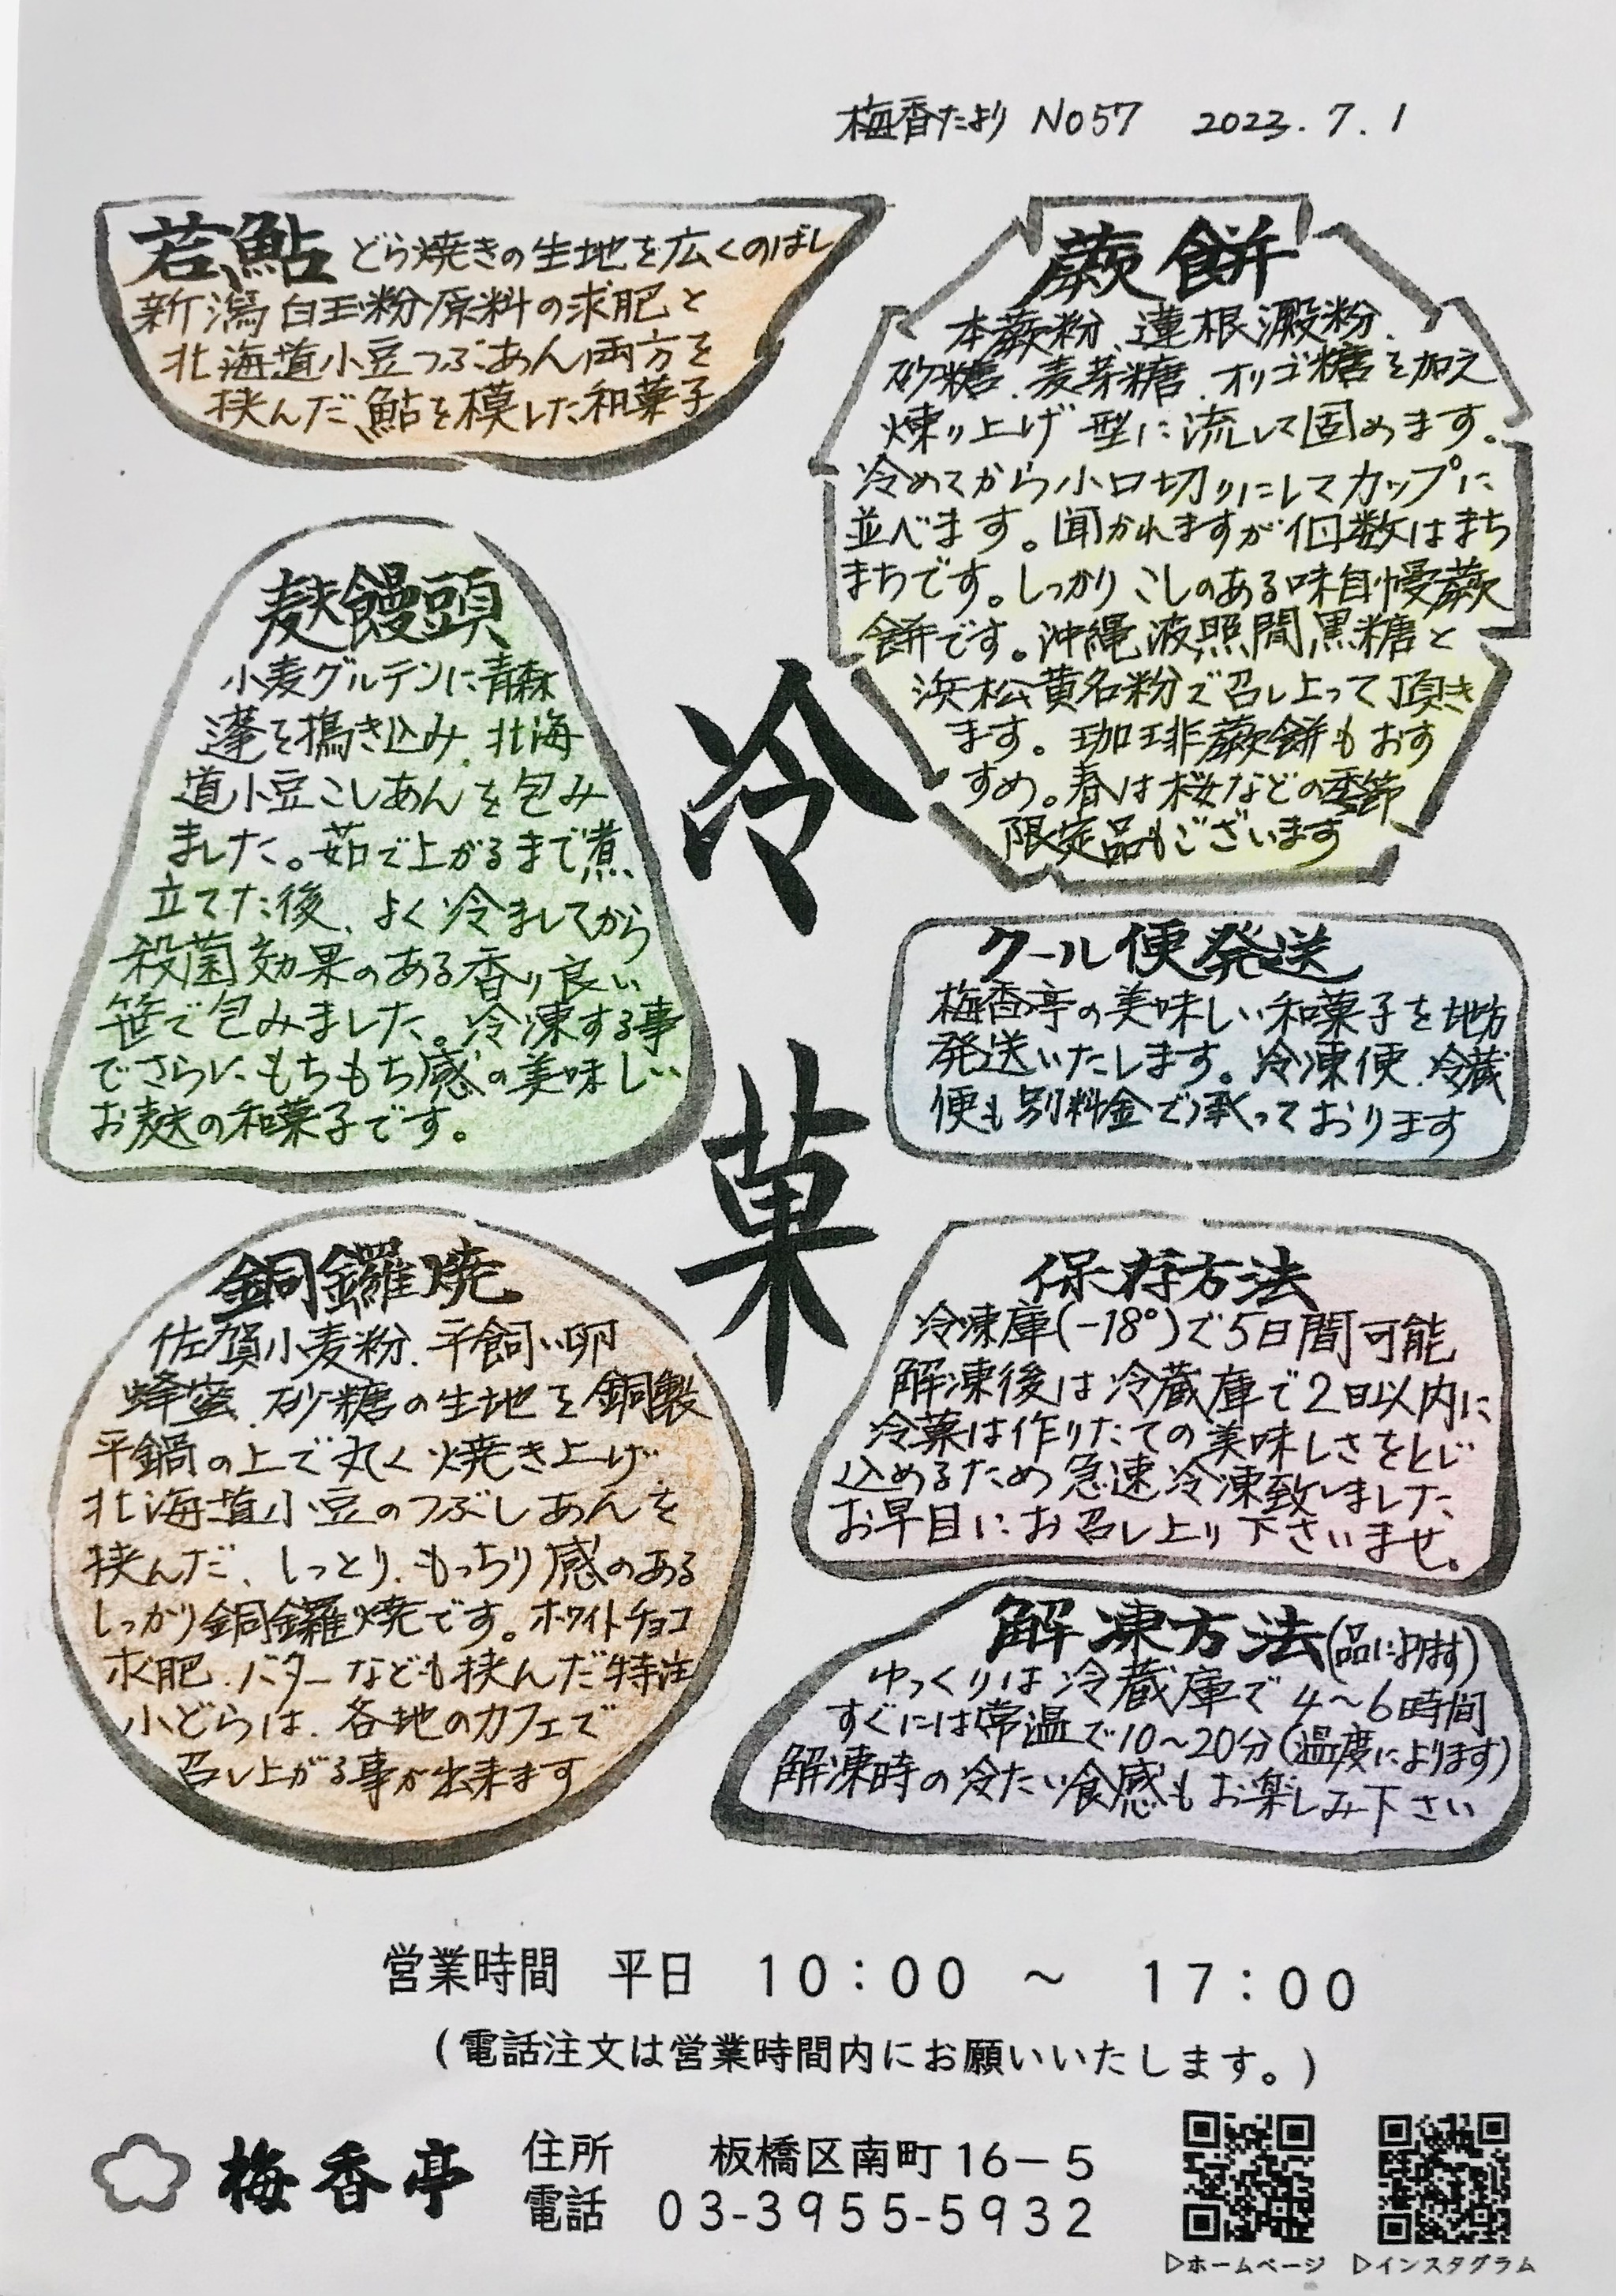 梅香たより No57 2023.7.1
若鮎 どら焼きの生地を広くのばし
新潟白玉粉原料の求肥と
北海道小豆つぶあん両方を
挟んだ、鮎を模した和菓子
蕨餅
本蕨粉、蓮根澱粉、
砂糖、麦芽糖、オリゴ糖を加え
煉り上げ 型に流して固めます。
冷めてから小口切りにしてカップに
並べます。聞かれますが個数はまち
まちです。しっかりこしのある味自慢蕨
餅です。沖縄波照間黒糖と
浜松黄名粉で召し上って頂き
ます。珈琲蕨餅もおす
すめ。春は桜などの季節
限定品もございます
麸饅頭
小麦グルテンに青森
蓬を搗き込み、北海
道小豆こしあんを包み
ました。茹で上がるまで煮
立てた後、よく冷ましてから
殺菌効果のある香り良い
笹で包みました。冷凍する事
でさらにもちもち感の美味しい
お麸の和菓子です。
冷菓
クール便発送
梅香亭の美味しい和菓子を地方
発送いたします。冷凍便、冷蔵
便も別料金で承っております
銅鑼焼
佐賀小麦粉、平飼い卵
蜂蜜、砂糖の生地を銅製
平鍋の上で丸く焼き上げ
北海道小豆のつぶしあんを
挟んだ、しっとり、もっちり感のある
しっかり銅鑼焼です。ホワイトチョコ
求肥、バターなども挟んだ特注
小どらは、各地のカフェで
召し上がる事が出来ます
保存方法
冷凍庫(-18°)で5日間可能
解凍後は冷蔵庫で2日以内に
冷菓は作りたての美味しさをとじ
込めるため急速冷凍致しました
お早目にお召し上り下さいませ。
解凍方法(品によります)
ゆっくりは冷蔵庫で4〜6時間
すぐには常温で10〜20分(温度によります)
解凍時の冷たい食感もお楽しみ下さい
営業時間 平日 10：00 〜 17：00
(電話注文は営業時間内にお願いいたします。)
梅香亭
住所 板橋区南町16−5
電話 03-3955-5932
▷ホームページ ▷インスタグラム